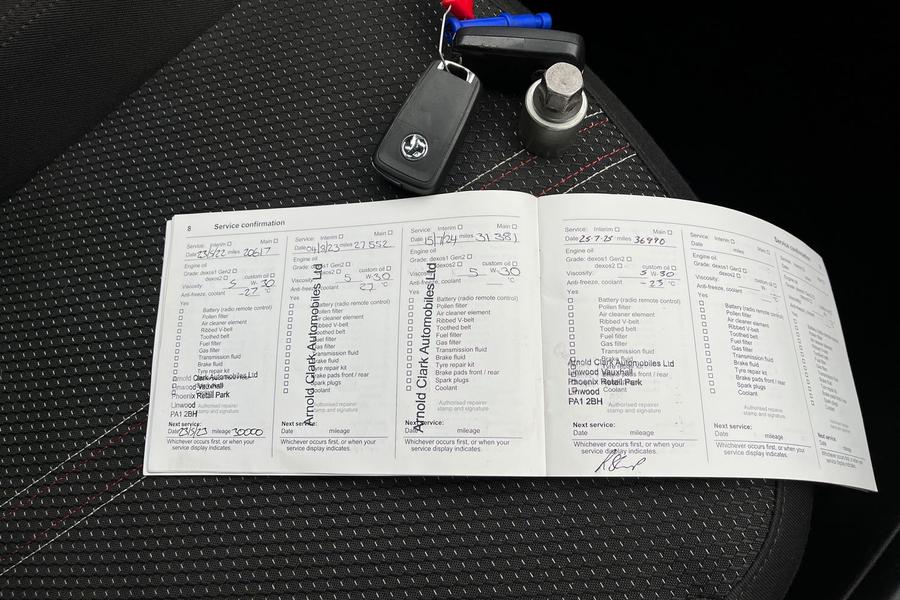 8 Service confirmation
Service: Interim Main
Date 23/5/22 miles 20617
Engine oil
Grade: dexos1 Gen2
dexos2 custom oil
Viscosity: 5 W- 30
Anti-freeze, coolant -27 °C
Yes
Battery (radio remote control)
Pollen filter
Air cleaner element
Ribbed V-belt
Toothed belt
Fuel filter
Gas filter
Transmission fluid
Brake fluid
Tyre repair kit
Arnold Clark Automobiles Ltd
Linwood Vauxhall
Phoenix Retail Park
Linwood
PA1 2BH
Authorised repairer
stamp and signature
Next service:
Date 23/5/23 mileage 30000
Whichever occurs first, or when your
service display indicates.
Service: Interim Main
Date 04/3/23 miles 27552
Engine oil
Grade: dexos1 Gen2
dexos2 custom oil
Viscosity: 5 W- 30
Anti-freeze, coolant 27 °C
Yes
Battery (radio remote control)
Pollen filter
Air cleaner element
Ribbed V-belt
Toothed belt
Fuel filter
Gas filter
Transmission fluid
Brake fluid
Tyre repair kit
Brake pads front / rear
Spark plugs
Coolant
Arnold Clark Automobiles Ltd
Authorised repairer
stamp and signature
Next service:
Date mileage
Whichever occurs first, or when your
service display indicates.
Service: Interim Main
Date 15/7/24 miles 31381
Engine oil
Grade: dexos1 Gen2
dexos2 custom oil
Viscosity: 5 W- 30
Anti-freeze, coolant °C
Yes
Battery (radio remote control)
Pollen filter
Air cleaner element
Ribbed V-belt
Toothed belt
Fuel filter
Gas filter
Transmission fluid
Brake fluid
Tyre repair kit
Brake pads front / rear
Spark plugs
Coolant
Arnold Clark Automobiles Ltd
Authorised repairer
stamp and signature
Next service:
Date mileage
Whichever occurs first, or when your
service display indicates.
Service: Interim Main
Date 25-7-25 miles 36990
Engine oil
Grade: dexos1 Gen2
dexos2 custom oil
Viscosity: 5 W- 30
Anti-freeze, coolant -25 °C
Yes
Battery (radio remote control)
Pollen filter
Air cleaner element
Ribbed V-belt
Toothed belt
Fuel filter
Gas filter
Transmission fluid
Brake fluid
Arnold Clark Automobiles Ltd
Linwood Vauxhall
Phoenix Retail Park
Linwood
PA1 2BH
Coolant
Authorised repairer
stamp and signature
Next service:
Date mileage
Whichever occurs first, or when your
service display indicates.
Service: Interim Main
Date miles
Engine oil
Grade: dexos1 Gen2
dexos2 custom oil
Viscosity: W-
Anti-freeze, coolant °C
Yes
Battery (radio remote control)
Pollen filter
Air cleaner element
Ribbed V-belt
Toothed belt
Fuel filter
Gas filter
Transmission fluid
Brake fluid
Tyre repair kit
Brake pads front / rear
Spark plugs
Coolant
Authorised repairer
stamp and signature
Next service:
Date mileage
Whichever occurs first, or when your
service display indicates.
Service